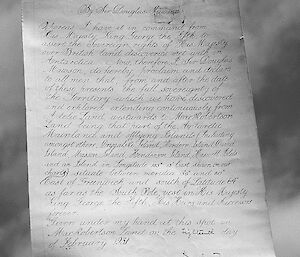 By Sir Douglas Mawson
Whereas I have it in command from
His Majesty King George the Fifth to
assert the sovereign rights of His Majesty
over British land discoveries met with in
Antarctica. Now, therefore, I Sir Douglas
Mawson, do hereby proclaim and declare
to all men that, from and after the date
of these presents, the full sovereignty of
the Territory which we have discovered
and explored extending continuously from
Adelie Land westwards to MacRobertson
Land being that part of the Antarctic
Mainland and offlying Islands including
amongst others
Island
and an Island in Longitude
situate between meridia
East of Greenwich and south of Latitude
as far as the South Pole vest in His Majesty
King George the Fifth, His Heirs and Successors
forever
Given under my hand at this spot in
MacRobertson Land on the Eighteenth day
of February 1931